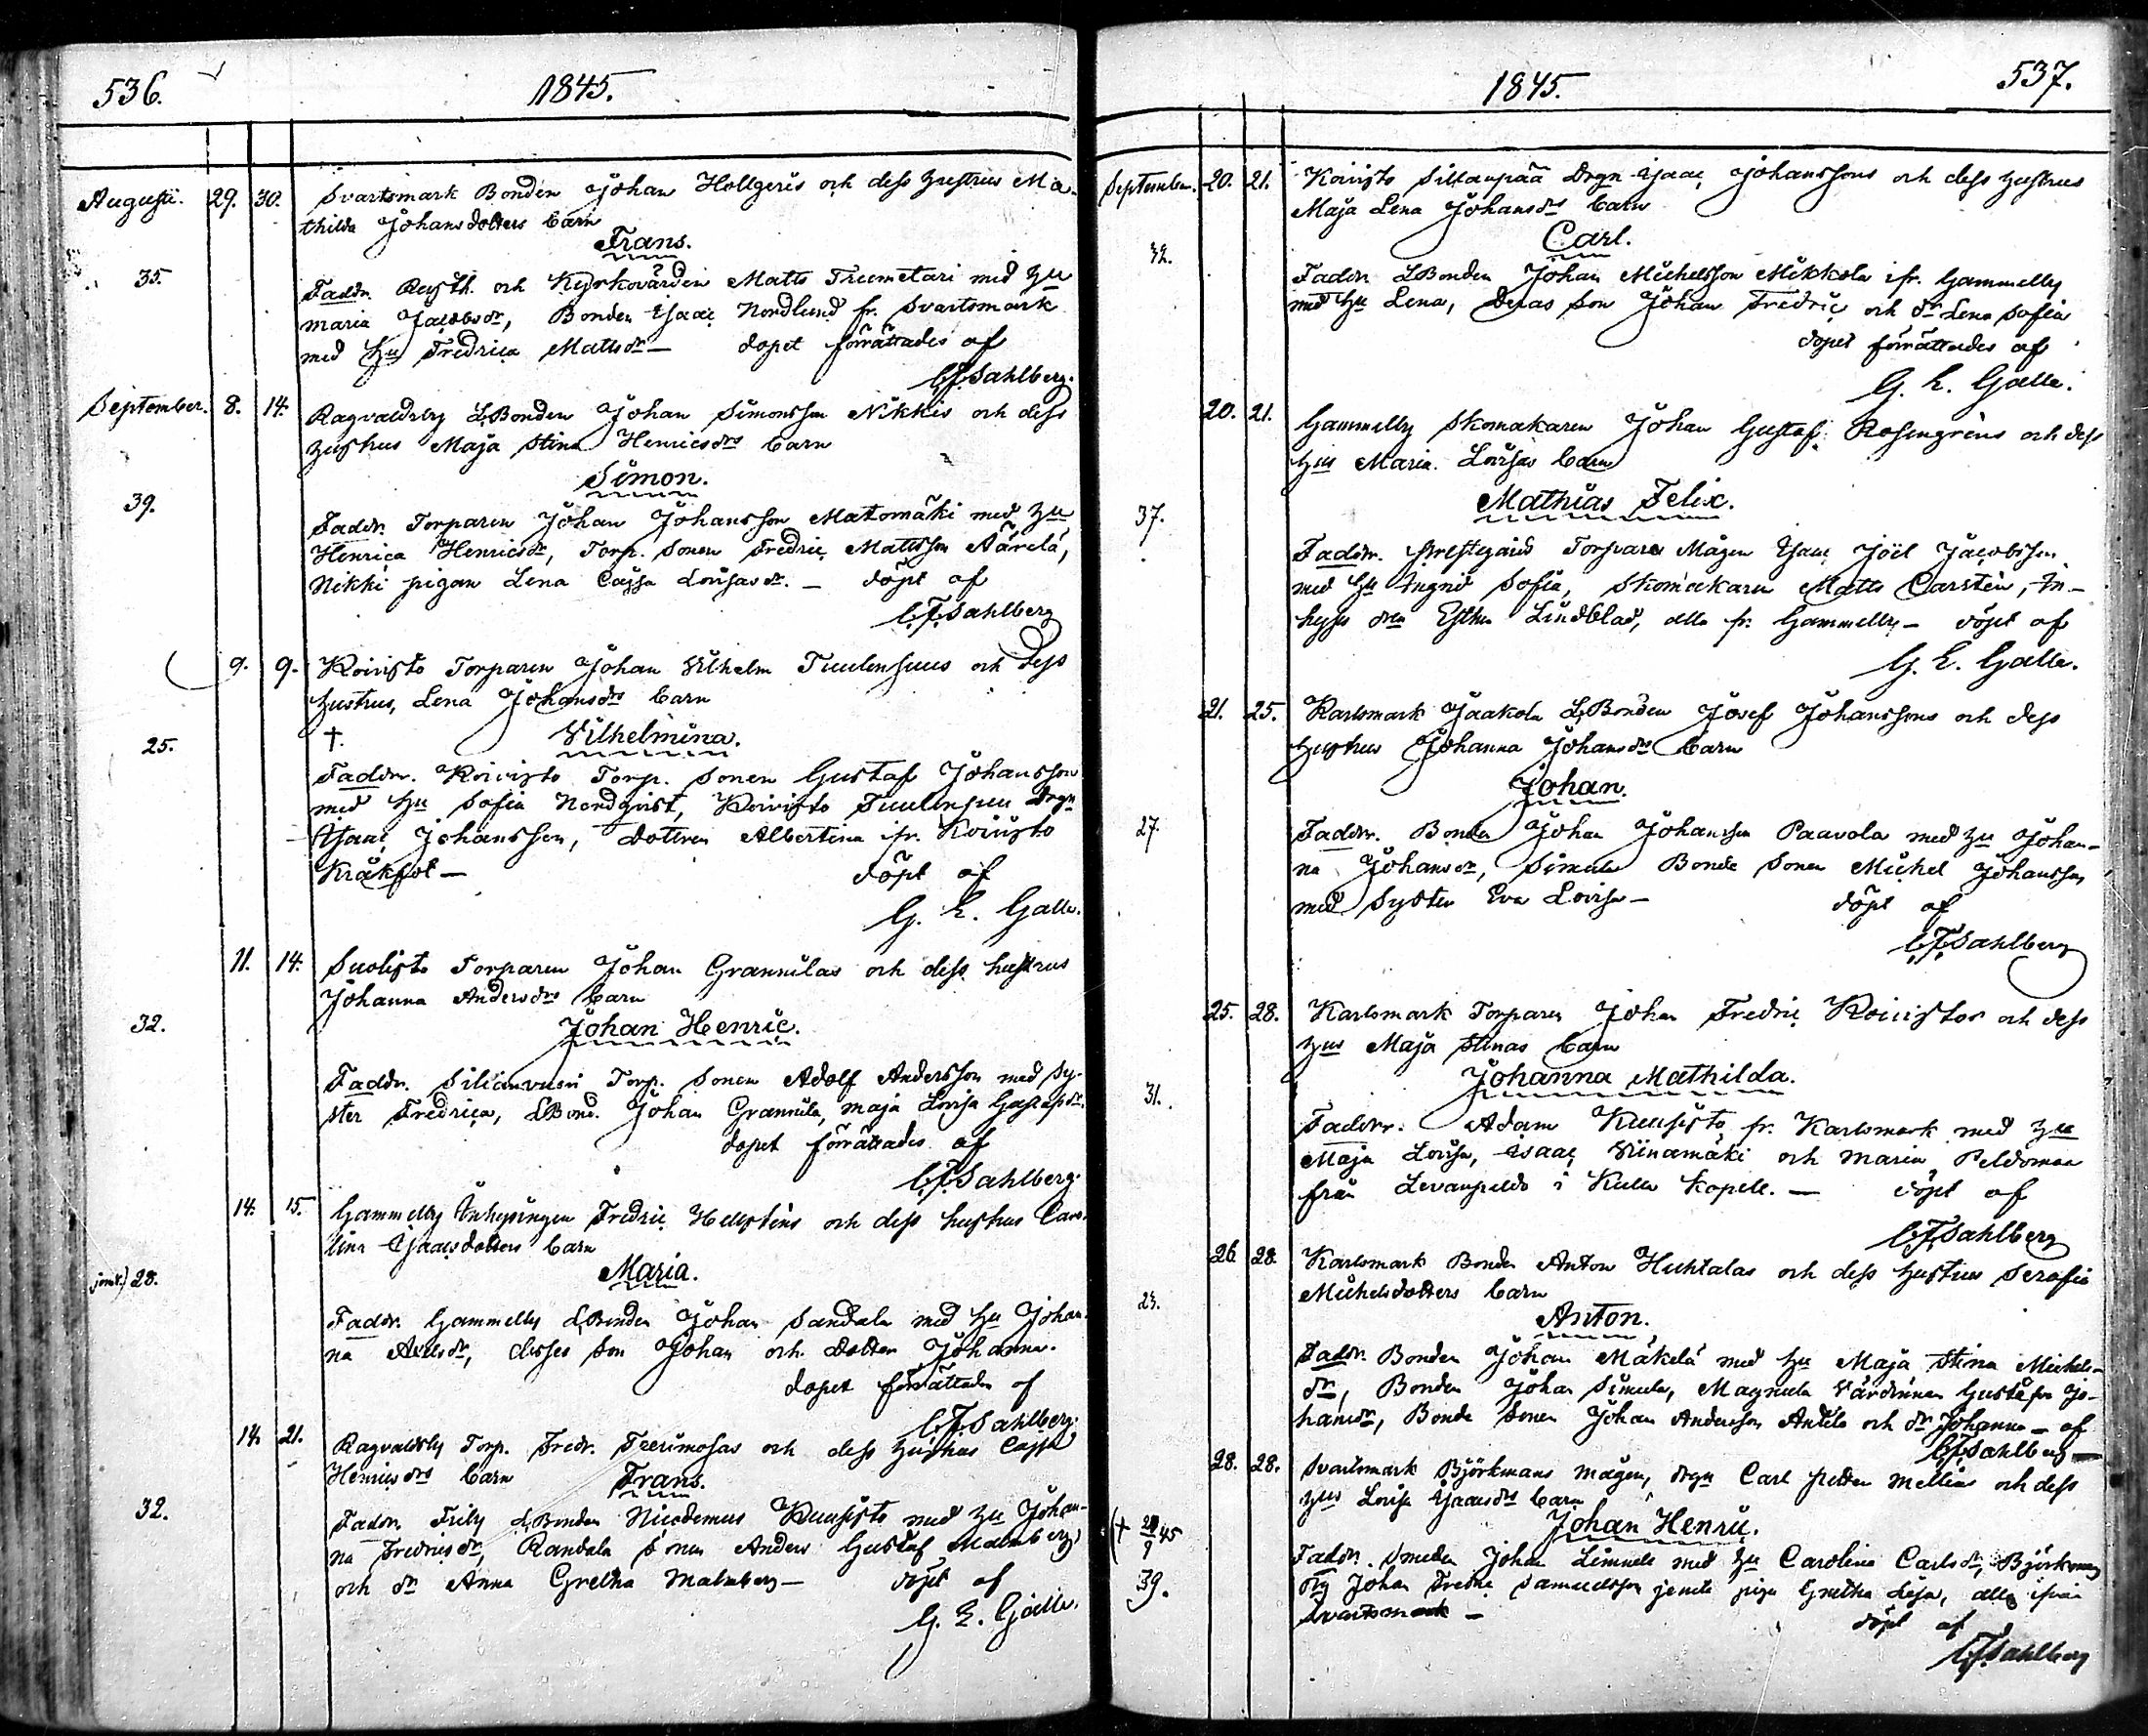 536.
1845.
Augusti. 29. 30. Svartsmark Bonden Johan Hollgers och dess hustrus Ma-
thilda Johansdotters barn
Frans.
35.
Faddr. Rusth. och Kyrkovärden Matts Treumetari med hu
maria Jacobsdr, Bonden Isaac Nordlund fr. Svartsmark
med hu Fredrica Mattsdr — dopet förrättades af
C.F. Sahlberg.
September. 8. 14. Ragvaldsby LBonden Johan Simonsson Nikkis och dess
hustrus Maja Stina Henricsdrs barn
Simon.
39.
Faddr. Torparen Johan Johansson Matomäki med hu
Henrica Henricsdr, Torp. Sonen Fredric Mattsson Äärelä,
Nikki pigan Lena Cajsa Lovisasdr. — döpt af
C.F. Sahlberg
9. 9. Koivisto Torparen Johan Vilhelm Tuulensuus och dess
hustrus, Lena Johansdrs barn
†. Vilhelmina.
25.
Faddrr. Koivisto Torp. Sonen Gustaf Johansson
med hu Sofia Nordqvist, Koivisto Tuulensuu drgn
Isaac Johansson, dottren Albertina ifr. Koivisto
Kråkfot — döpt af
G. E. Galle.
11. 14. Suolisto Torparen Johan Grannilas och dess hustrus
Johanna Andersdrs barn
Johan Henric.
32.
Faddr. Siliänvuori Torp. Sonen Adolf Andersson med Sy-
ster Fredrica, LBond. Johan Grannila, maja Lovisa Gustafsdr.
dopet förrättades af
C.F. Sahlberg.
14. 15. Gammelby Inhysingen Fredric Hellstens och dess hustrus Caro-
lina Isaacsdotters barn
Maria.
28.
Faddr. Gammelby LBonden Johan Sandala med hu Johan-
na Axelsdr, desses Son Johan och Dotter Johanna.
dopet förrättades af
C.F. Sahlberg.
14. 21. Ragvaldsby Torp. Fredr. och dess hustrus Cajsa
Henricsdrs barn
Frans.
32.
Faddr. LBonden Nicodemus Kuusisto med hu Johan-
na Fredricsdr, Randala Sonen Anders Gustaf Malmberg
och dr Anna Gretha Malmberg — döpt af
G. E. Galle.
1845.
537.
September. 20. 21. Koivisto Siltanpää Drgn Isaac Johanssons och dess hustrus
Maja Lena Johansdrs barn
Carl.
32.
Faddr. LBonden Johan Michelsson Mikkola ifr. Gammelby
med hu Lena, deras Son Johan Fredric och dr Lena Sofia
dopet förrättades af
G. E. Galle.
20. 21. Gammelby Skomakaren Johan Gustaf Rosengrens och dess
hus Maria Lovisas barn
Mathias Felix.
37.
Faddr. Prestgårds Torpare Mågen Isaac Joël Jacobsson
med hu Ingrid Sofia, Skomakaren Matts Carsten, In-
hyses Esther Lindblad, alla fr. Gammelby — döpt af
G. E. Galle.
21. 25. Karlsmark Jaakola LBonden Josef Johanssons och dess
hustrus Johanna Johansdrs barn
Johan.
27.
Faddr. Bonden Johan Johansson Paavola med hu Johan-
na Johansdr, Simula Bonde Sonen Michel Johansson
med Syster Eva Lovisa — döpt af
C.F. Sahlberg
25. 28. Karlsmark Torparen Johan Fredric Koivistos och dess
hus Maja Stinas barn
Johanna Mathilda.
31.
Faddrr. Adam Kuusisto fr. Karlsmark med hu
Maja Lovisa, Isaac Viinamäki och Maria Peldoman
från Levanpeldo i Kulla Kapell. — döpt af
C.F. Sahlberg
26. 28. Karlsmark Bonden Anton Huhtalas och dess hustrus Serafia
Michelsdotters barn
Anton.
23.
Faddr. Bonden Johan Mäkelä med hu Maja Stina Michels-
dr, Bonden Johan Simula, Magnula Värdinnan Gustafva Jo-
hansdr, Bonde Sonen Johan Andersson Anttila och dr Johanna — af
C.F. Sahlberg —
28. 28. Svartsmark Björkmans mågen, drgn Carl Mellins och dess
hus Lovisa Isaacsdrs barn
Johan Henric.
39.
Faddr. Smeden Johan Limnell med hu Carolina Carlsdr, Björkmans
drg Johan Fredric Samuelsson jemte piga Gretha Lisa, alla ifrån
Svartsmark — döpt af
C.F. Sahlberg